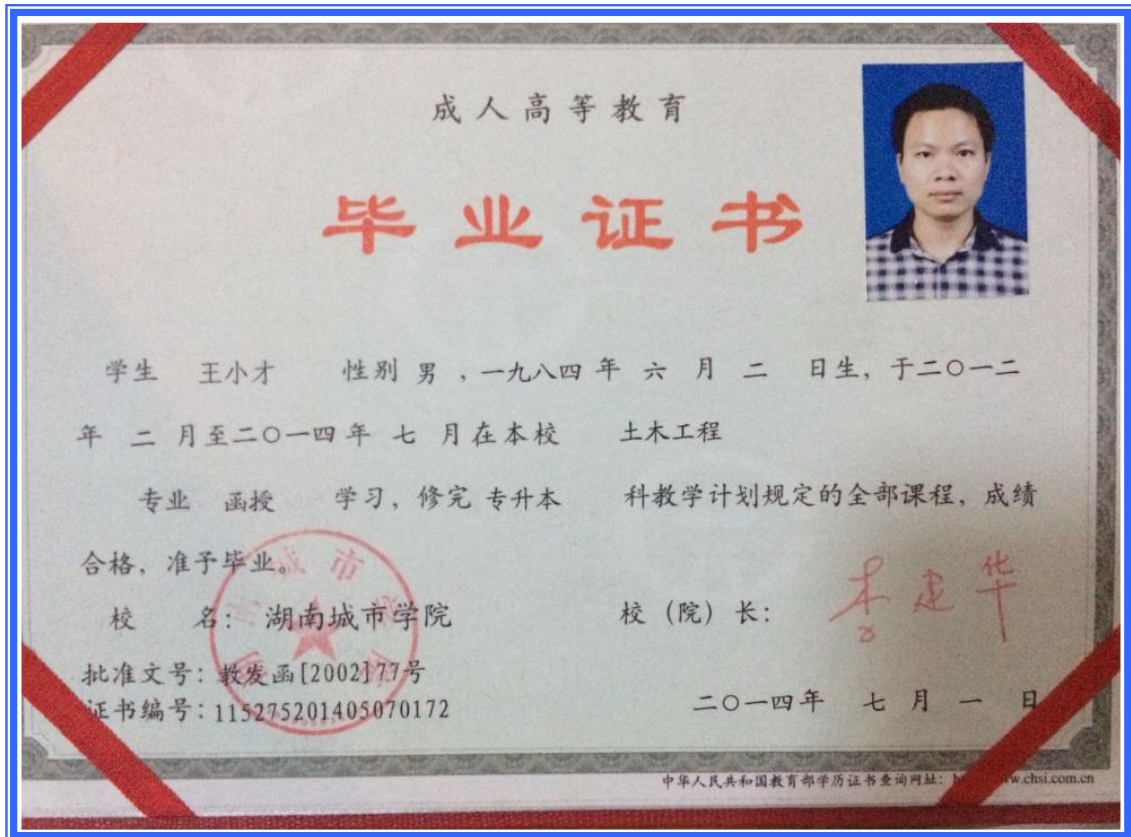 成人高等教育
毕业证书
学生 王小才 性别 男 ，一九八四 年 六 月 二 日生，于二〇一二
年 二 月至二〇一四 年 七 月在本校 土木工程
专业 函授 学习，修完 专升本 科教学计划规定的全部课程，成绩
合格，准予毕业。
校 名：湖南城市学院 校（院）长：李建华
批准文号：教发函[2002]77号
证书编号：115275201405070172 二〇一四年 七 月 一 日
中华人民共和国教育部学历证书查询网址：w.chsi.com.cn